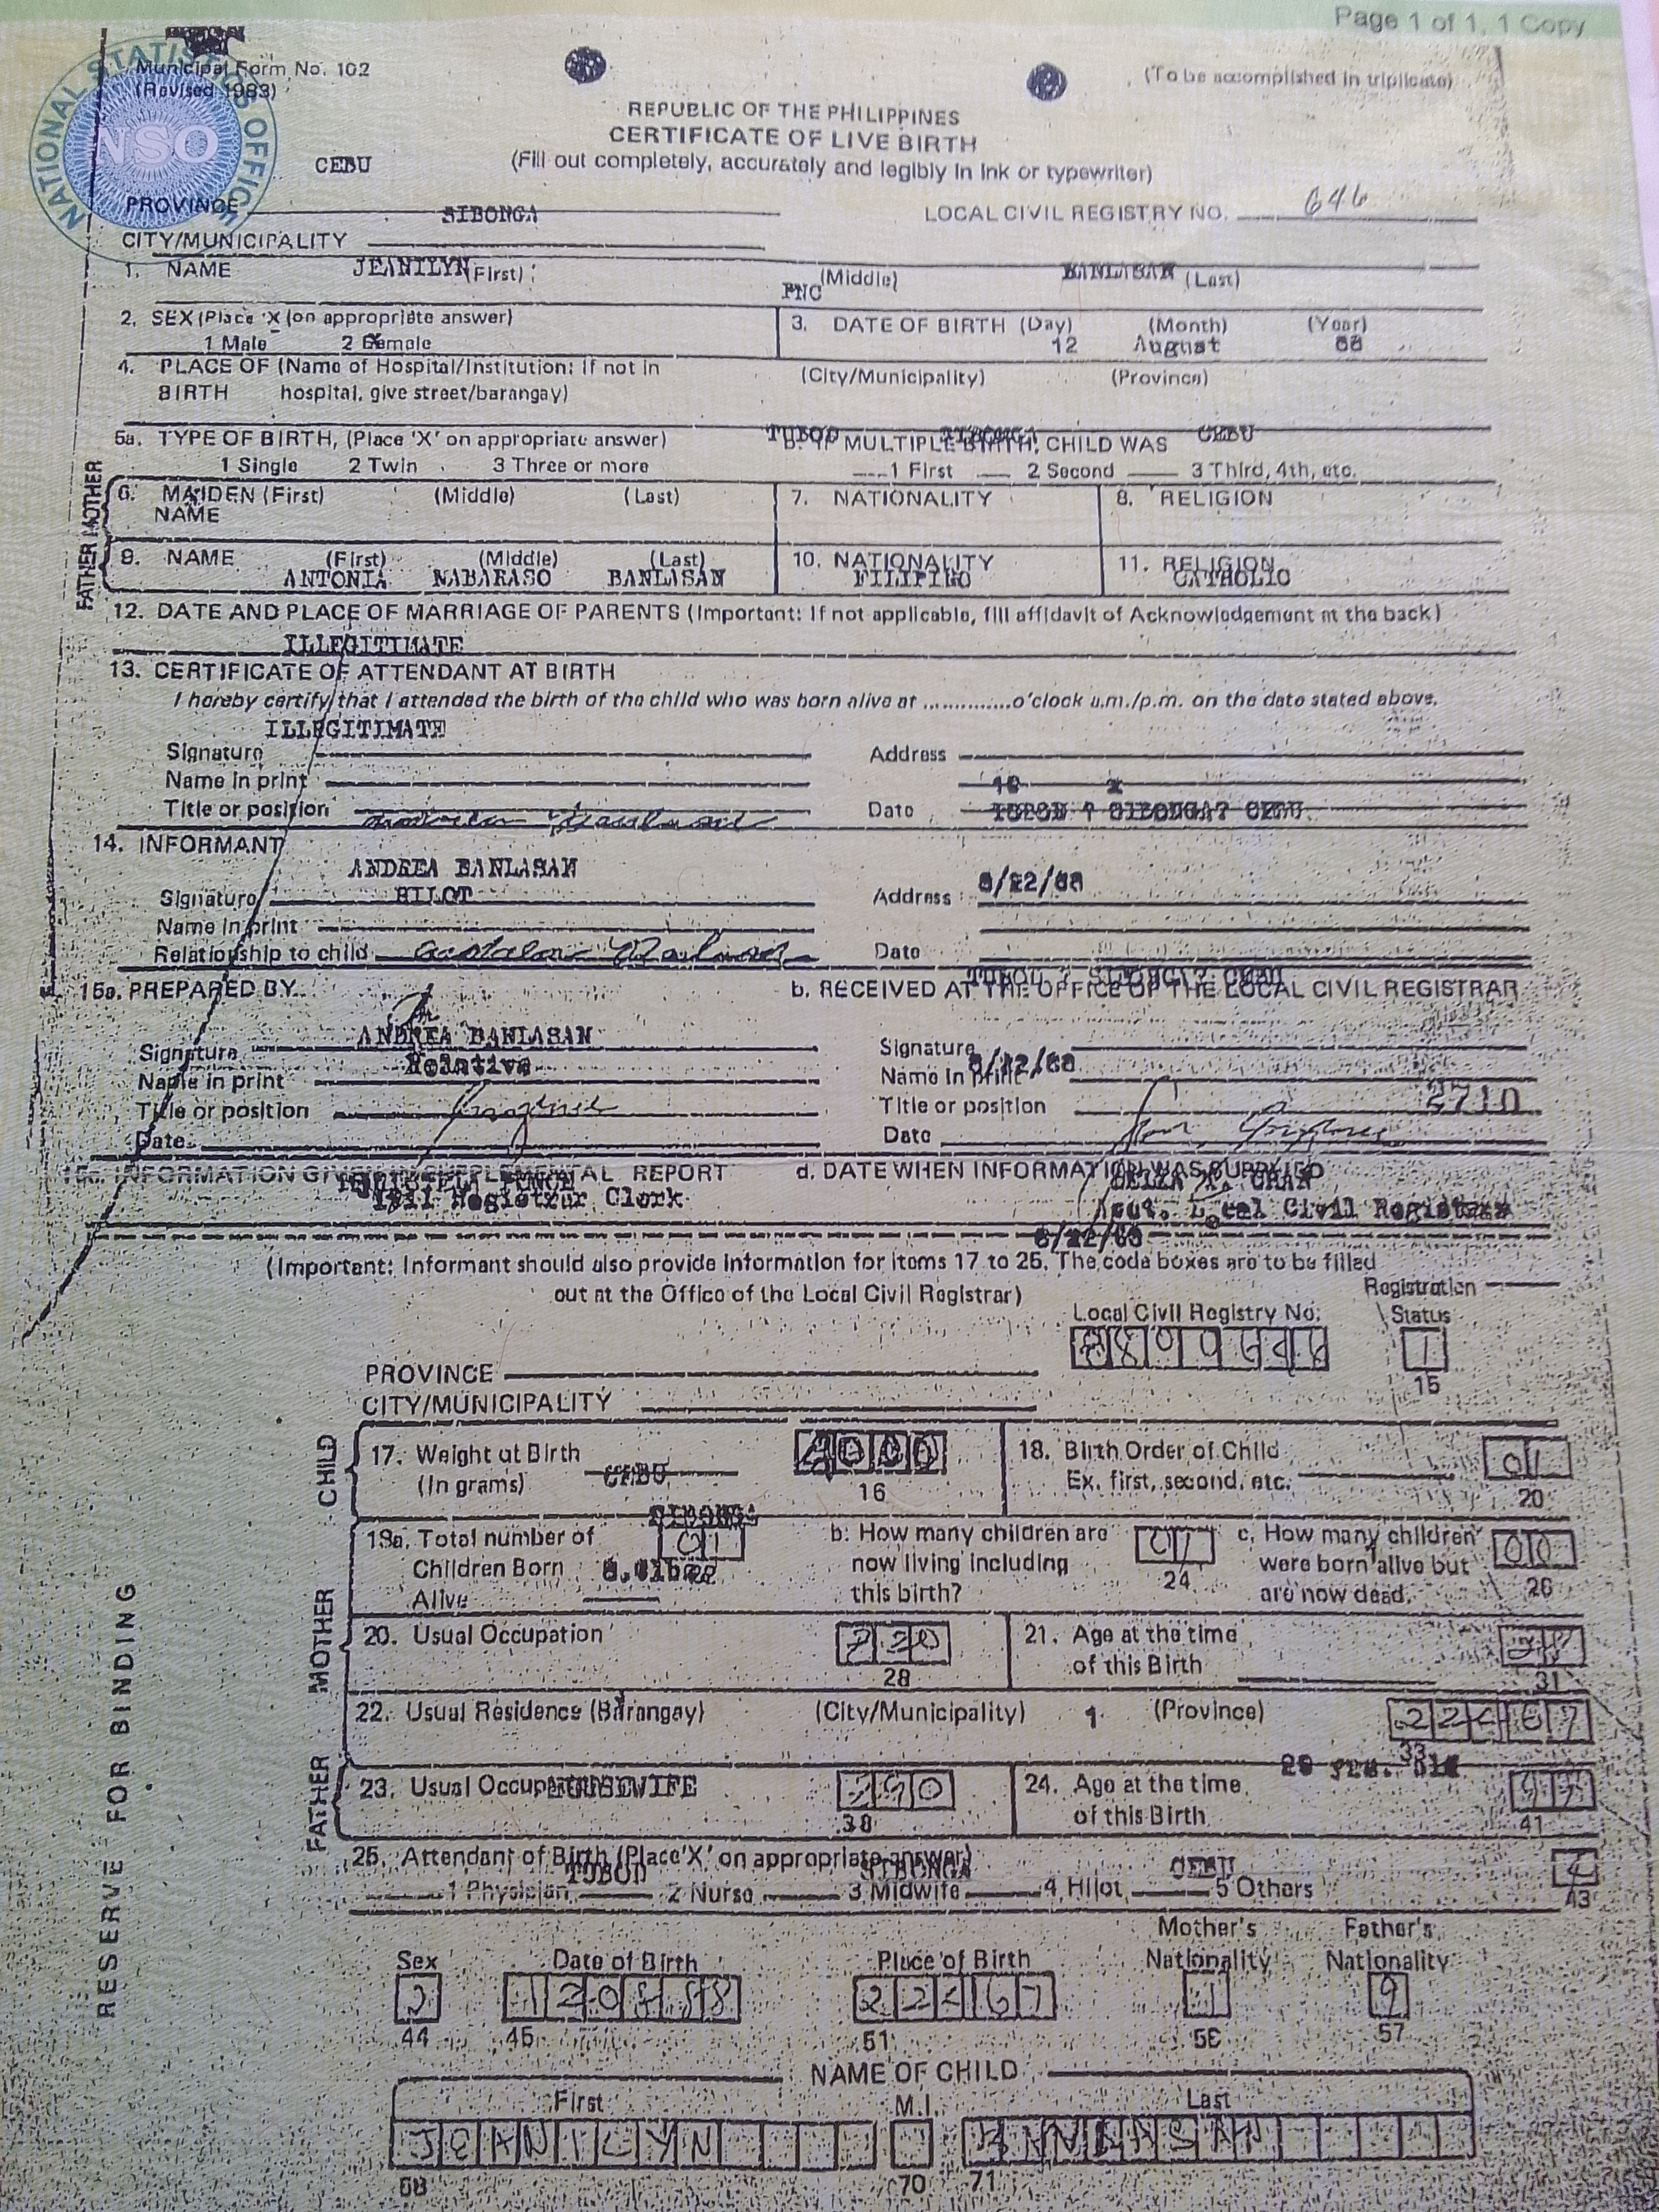 Page 1 of 1, 1 Copy
NATIONAL STATISTICS OFFICE
NSO
Municipal Form No. 102
(Revised 1983)
(To be accomplished in triplicate)
REPUBLIC OF THE PHILIPPINES
CERTIFICATE OF LIVE BIRTH
(Fill out completely, accurately and legibly in ink or typewriter)
CEBU
PROVINCE
SIBONGA
LOCAL CIVIL REGISTRY NO. 646
CITY/MUNICIPALITY
1. NAME JEANILYN (First) (Middle) BANLASAN (Last)
FNC
2. SEX (Place 'X' (on appropriate answer)
1 Male 2 Female
3. DATE OF BIRTH (Day) (Month) (Year)
12 August 88
4. PLACE OF (Name of Hospital/Institution: if not in
BIRTH hospital, give street/barangay)
(City/Municipality) (Province)
TUBOD SIBONGA CEBU
5a. TYPE OF BIRTH, (Place 'X' on appropriate answer)
b. IF MULTIPLE BIRTH, CHILD WAS
1 Single 2 Twin 3 Three or more
1 First 2 Second 3 Third, 4th, etc.
MOTHER
6. MAIDEN (First) (Middle) (Last)
NAME
7. NATIONALITY
8. RELIGION
FATHER
9. NAME (First) (Middle) (Last)
ANTONIA NABARASO BANLASAN
10. NATIONALITY
FILIPINO
11. RELIGION
CATHOLIC
12. DATE AND PLACE OF MARRIAGE OF PARENTS (Important: If not applicable, fill affidavit of Acknowledgement at the back)
ILLEGITIMATE
13. CERTIFICATE OF ATTENDANT AT BIRTH
I hereby certify that I attended the birth of the child who was born alive at .............o'clock a.m./p.m. on the date stated above.
ILLEGITIMATE
Signature Address
Name in print
Title or position Date
14. INFORMANT
ANDREA BANLASAN
HILOT
Signature Address 8/22/88
Name in print
Relationship to child Date
TUBOD, SIBONGA, CEBU
15a. PREPARED BY
b. RECEIVED AT THE OFFICE OF THE LOCAL CIVIL REGISTRAR
ANDREA BANLASAN
Relative
Signature Signature
Name in print Name in print 8/22/88
Title or position Title or position 2710
Date Date
INFORMATION GIVEN IN SUPPLEMENTAL REPORT
d. DATE WHEN INFORMATION WAS SUPPLIED
Registrar Clerk
Local Civil Registrar
8/22/88
(Important: Informant should also provide information for items 17 to 25. The code boxes are to be filled
out at the Office of the Local Civil Registrar)
Registration
Status
Local Civil Registry No.
1
15
PROVINCE
CITY/MUNICIPALITY
CHILD
17. Weight at Birth
(In grams)
CEBU
16
18. Birth Order of Child
Ex. first, second, etc.
01
20
SIBONGA
MOTHER
19a. Total number of
Children Born
Alive
01
b. How many children are
now living including
this birth?
01
24
c. How many children
were born alive but
are now dead.
00
26
20. Usual Occupation
28
21. Age at the time
of this Birth
31
22. Usual Residence (Barangay) (City/Municipality) 1 (Province)
22467
33
FATHER
23. Usual Occupation
HOUSEWIFE
38
24. Age at the time
of this Birth
41
25. Attendant of Birth (Place 'X' on appropriate answer)
TUBOD SIBONGA CEBU
1 Physician 2 Nurse 3 Midwife 4 Hilot 5 Others
4
43
RESERVE FOR BINDING
Sex
2
44
Date of Birth
120888
45
Place of Birth
22467
51
Mother's
Nationality
1
56
Father's
Nationality
9
57
NAME OF CHILD
First M.I. Last
JEANILYN BANLASAN
58 70 71